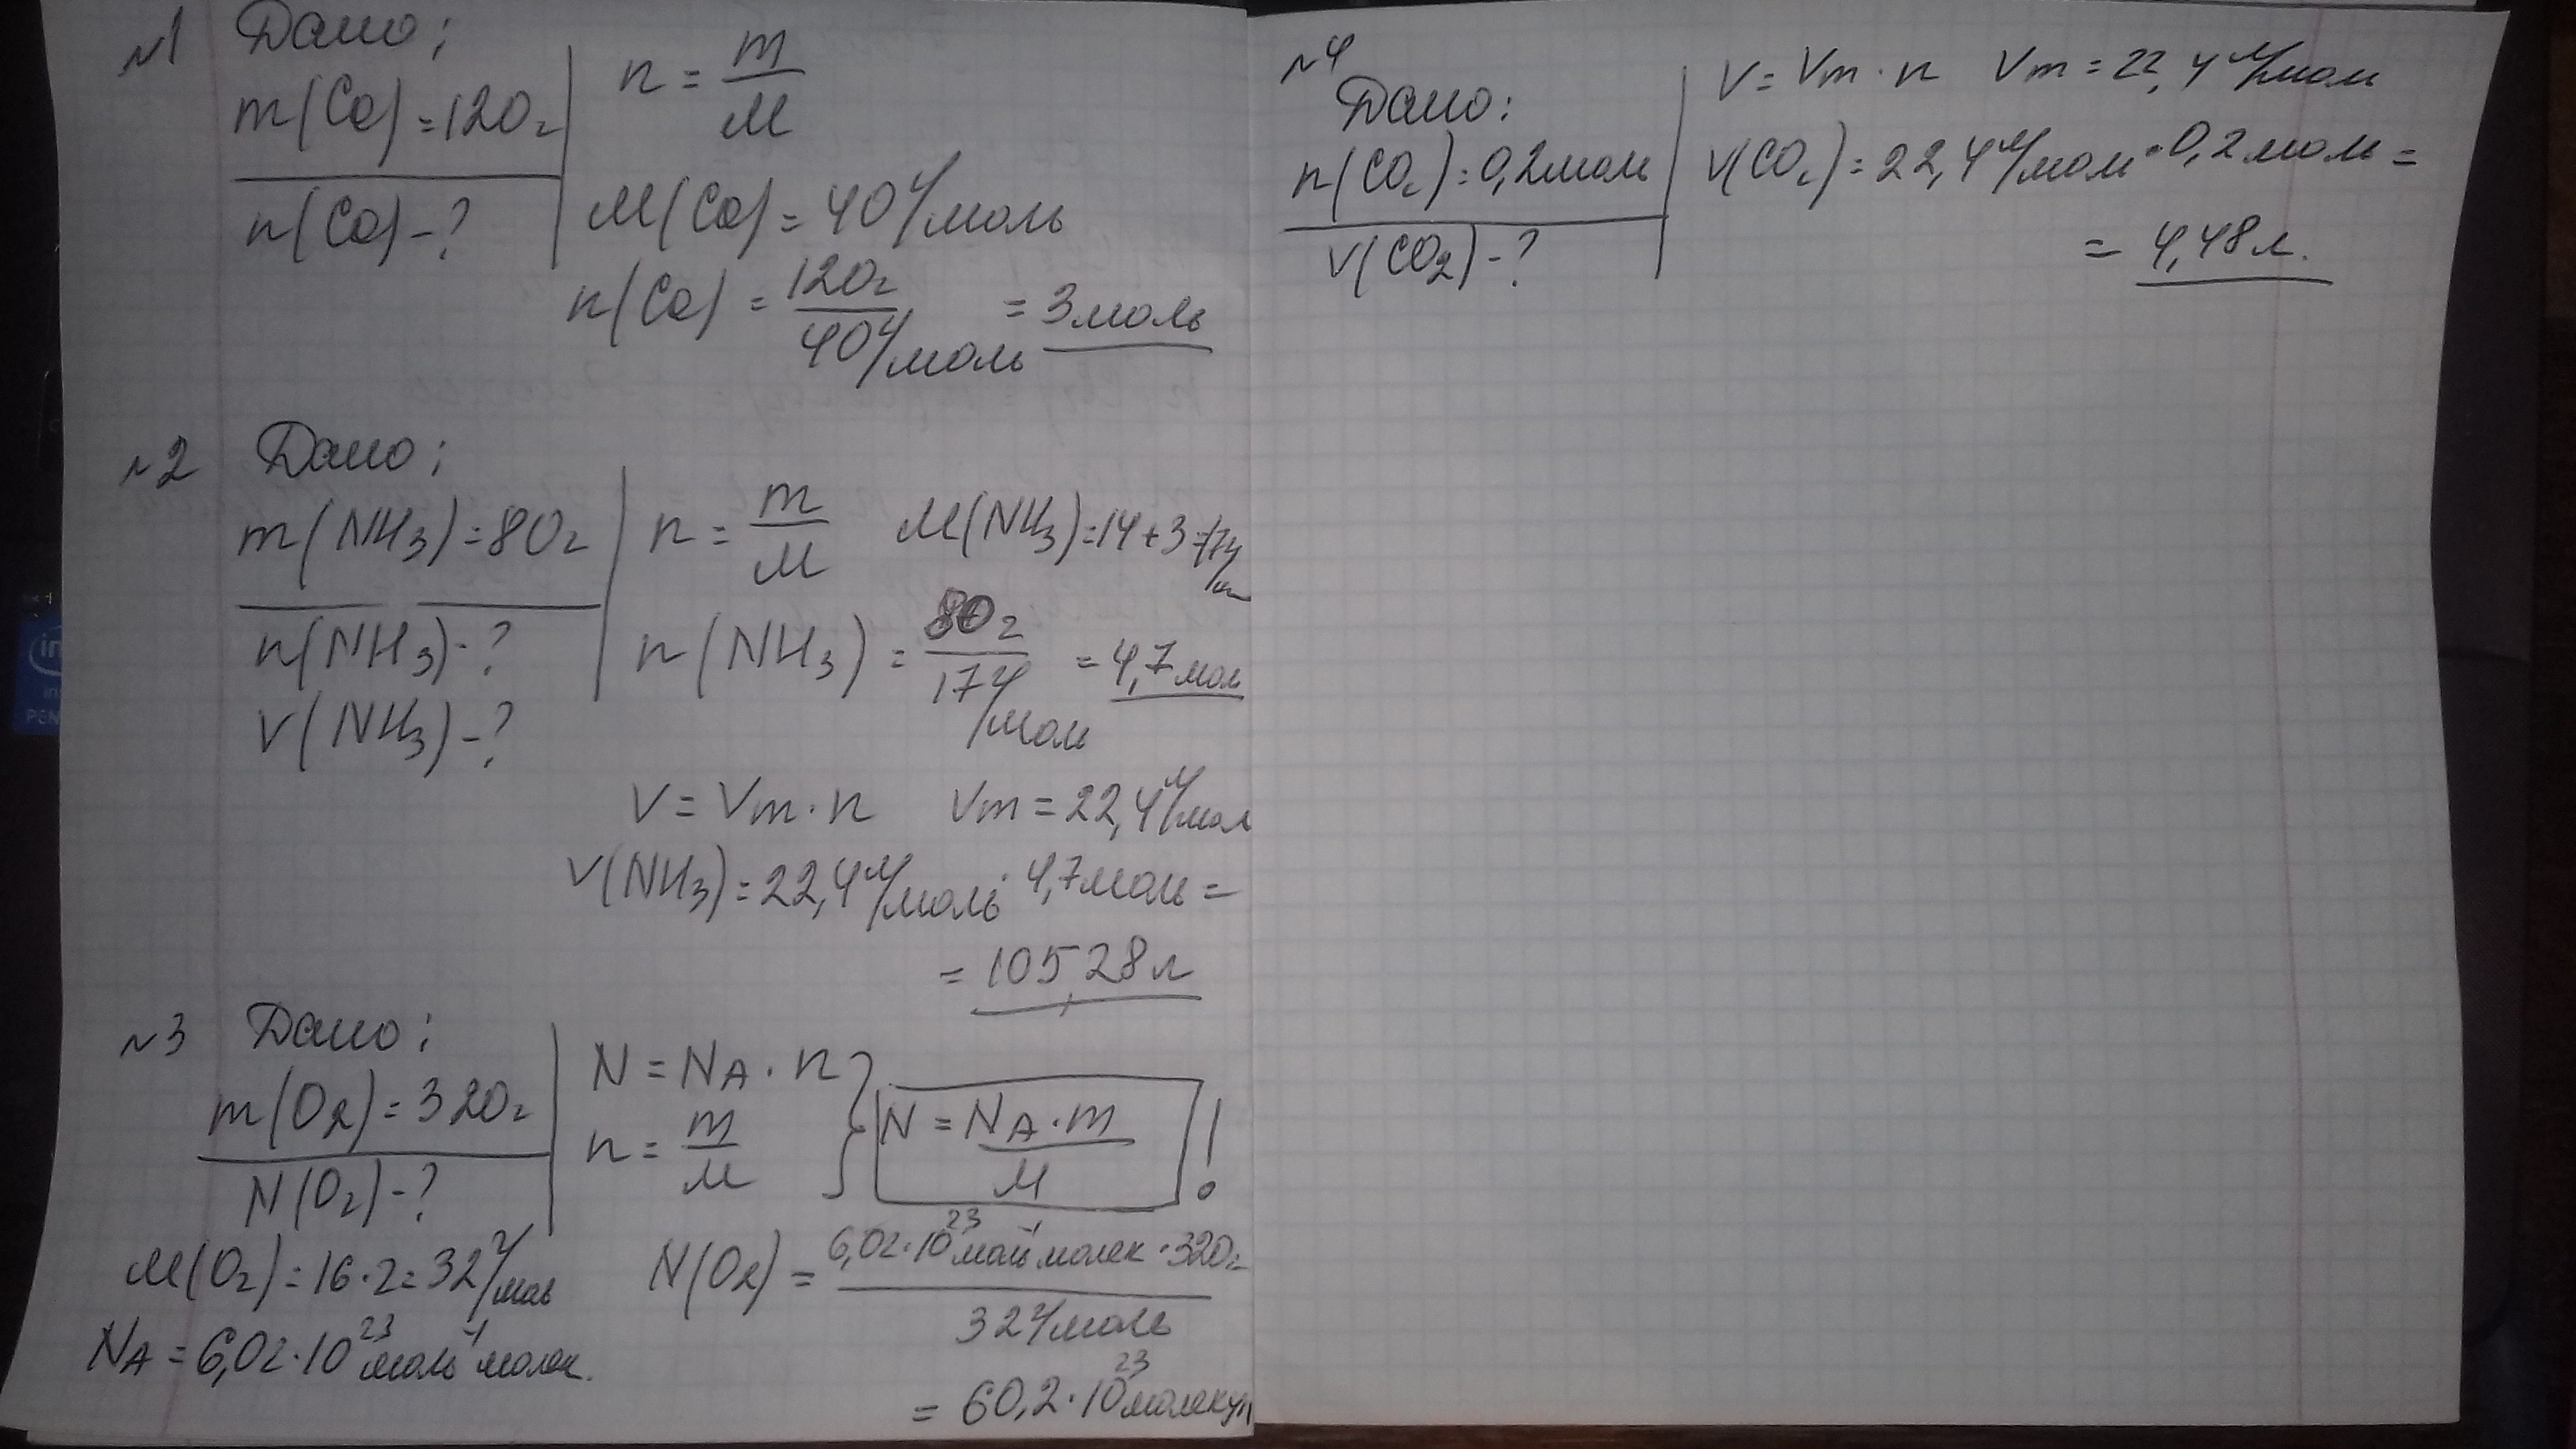 №1 Дано:
m(Ca)=120г
n(Ca)-?
n = m/M
M(Ca) = 40 г/моль
n(Ca) = 120г / 40 г/моль = 3 моль
№2 Дано:
m(NH3)=80г
n(NH3)-?
V(NH3)-?
n = m/M M(NH3)=14+3=17 г/
n(NH3) = 80г / 17 г/моль = 4,7 мол
V = Vm · n Vm = 22,4 л/мол
V(NH3)=22,4 л/моль · 4,7 моль =
= 105,28 л
№3 Дано:
m(O2)=320г
N(O2)-?
M(O2)=16·2=32 г/моль
NA = 6,02·10²³ моль⁻¹ молек.
N = NA · n
n = m/M
N = NA · m / M !
N(O2) = 6,02·10²³ моль⁻¹ молек · 320г / 32 г/моль
= 60,2·10²³ молекул
№4
Дано:
n(CO2)=0,2 моль
V(CO2)-?
V = Vm · n Vm = 22,4 л/моль
V(CO2) = 22,4 л/моль · 0,2 моль =
= 4,48 л.
in
PEN